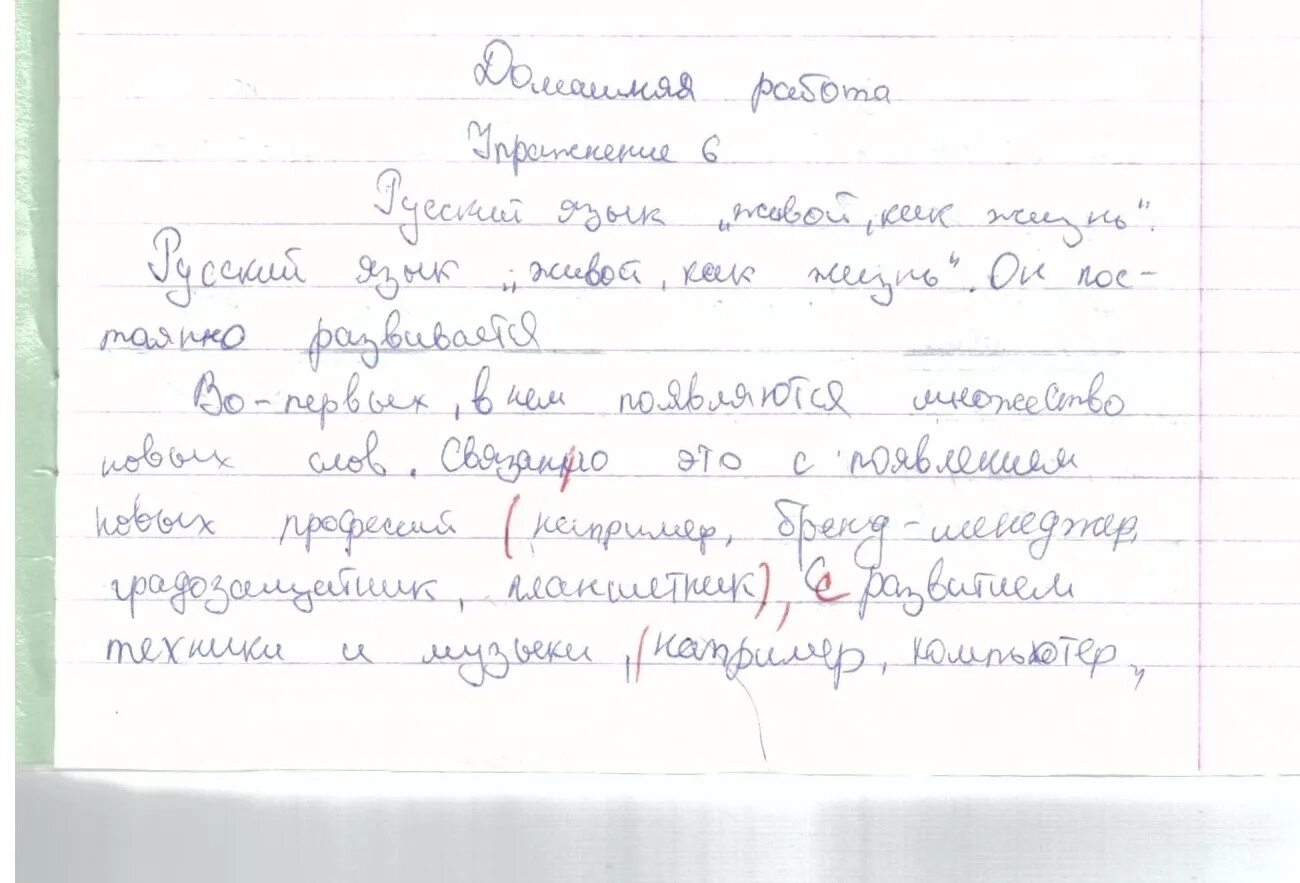 Домашняя работа
Упражнение 6
Русский язык „живой, как жизнь".
Русский язык „живой, как жизнь". Он пос-
таянно развивается
Во-первых, в нем появляются множество
новых слов. Связанно это с появлением
новых професий (например, бренд-менеджер,
градозащитник, планшетник), с развитием
техники и музыки, (например, компьютер,